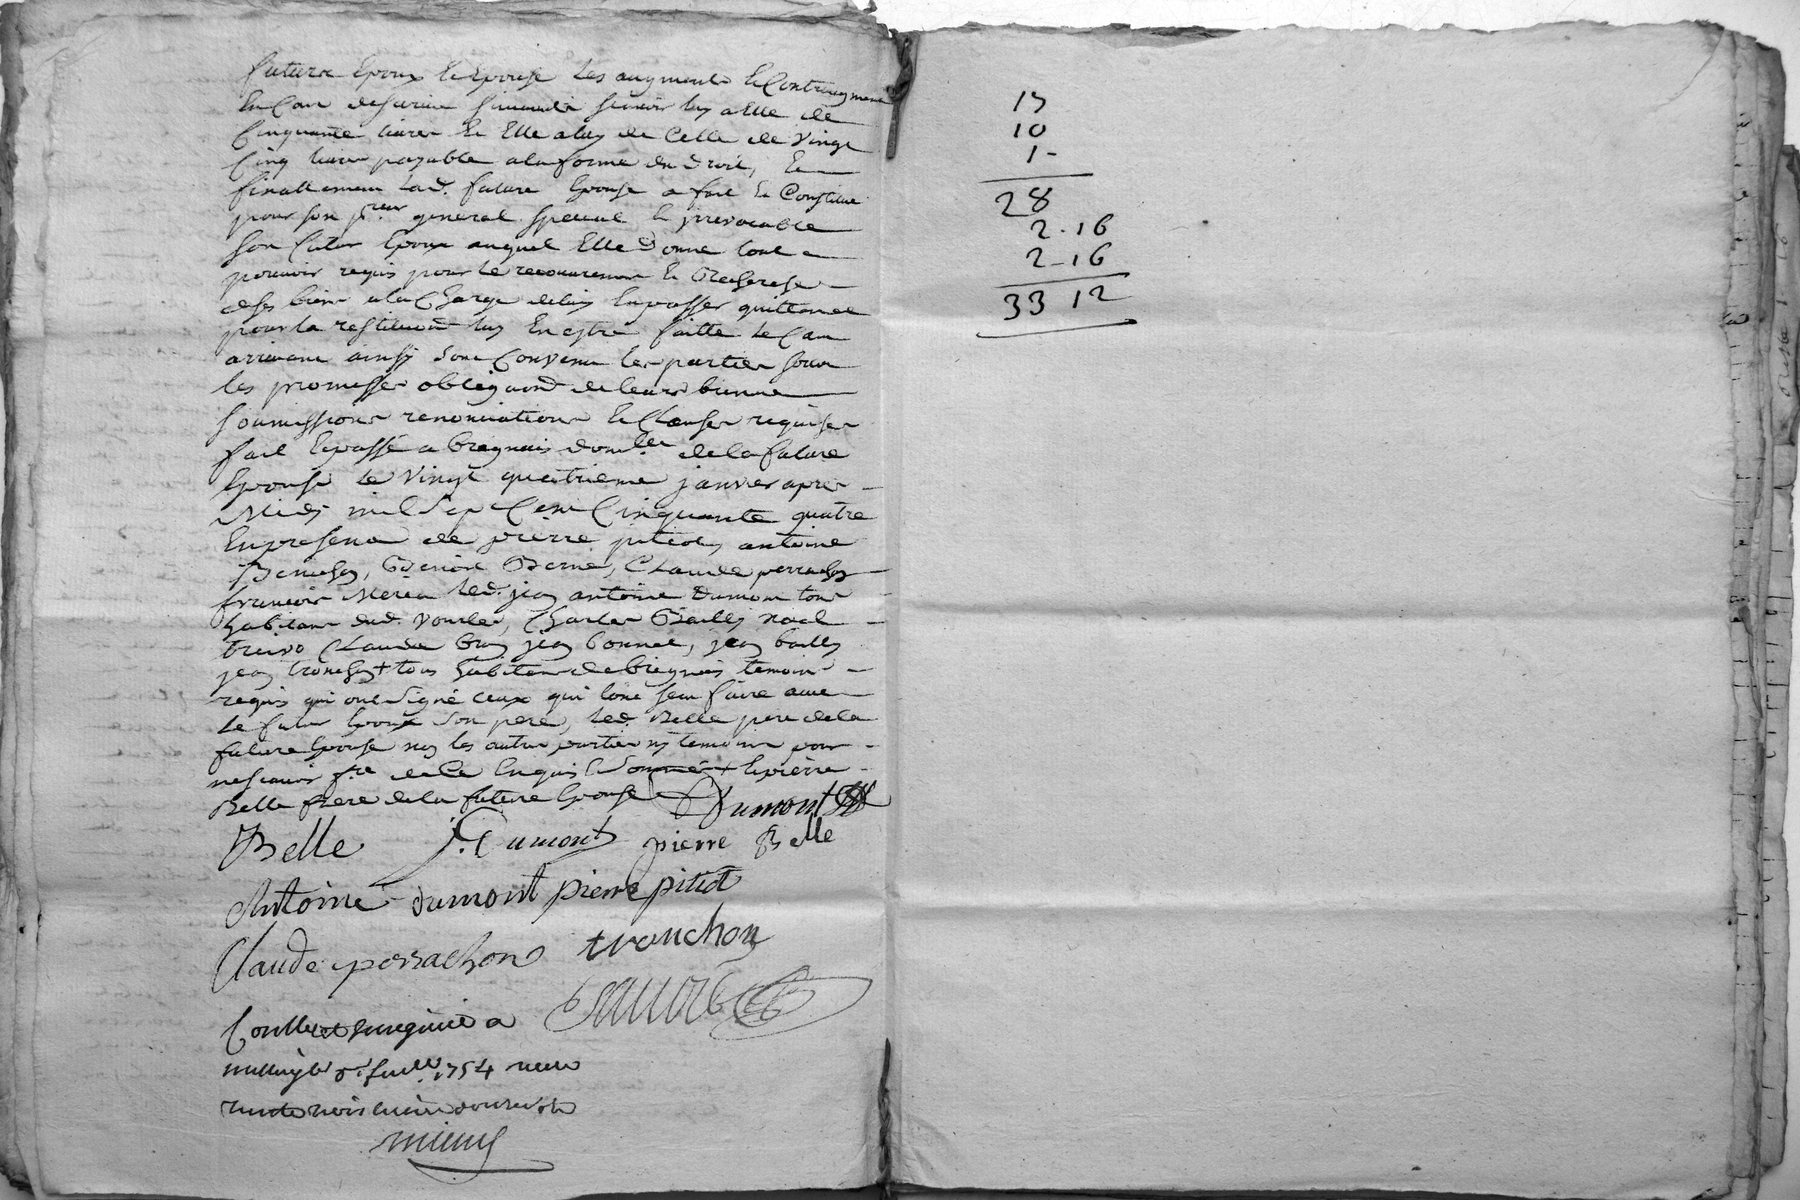 future Epoux et Epouse les augment et Contreaugment
En Cas de survie scavoir luy a Elle de
Cinquante livres et Elle a luy de Celle de Vingt
Cinq livres payable a la forme du droit, Et
finallement lad. future Epouse a fait et Constitué
pour son p.reur general special et jrrevocable
son futur Epoux auquel Elle donne tout
pouvoir requis pour le recouvrement et Recherche
de ses biens a la Charge de luy En passer quittance
pour la restitution luy En estre faitte le Cas
arrivant ainsy sont Convenu les parties sous
les promesses obligaon de leurs biens
soumissions renonciations et Clauses requises
fait et passé a brignais dom.lle de la future
Epouse le Vingt quatrieme janvier apres
Midy mil Sept Cent Cinquante quatre
En presence de pierre pitiot antoine
Benoist Berne, Claude perrachon
francois led. jean antoine Dumont tous
habitans dud. vourles, Charles Bailly noel
Claude jean bonnet, jean bailly
jean tronchon + tous habitans de brignais temoins
requis qui ont signé ceux qui l'ont sceu faire avec
le futur Epoux son pere, led. Belle pere de la
future Epouse non les autres parties ny temoins pour
ne scavoir f.re de ce Enquis et sommé + et pierre
Belle frere de la future Epouse Dumont
Belle J. Dumont pierre Belle
Antoine dumont pierre pitiot
Claude perrachon tronchon
Controllé et Insinué a
le 1754 recu
trois livres douze
13
10
1 -
28
2 - 16
2 - 16
33 12